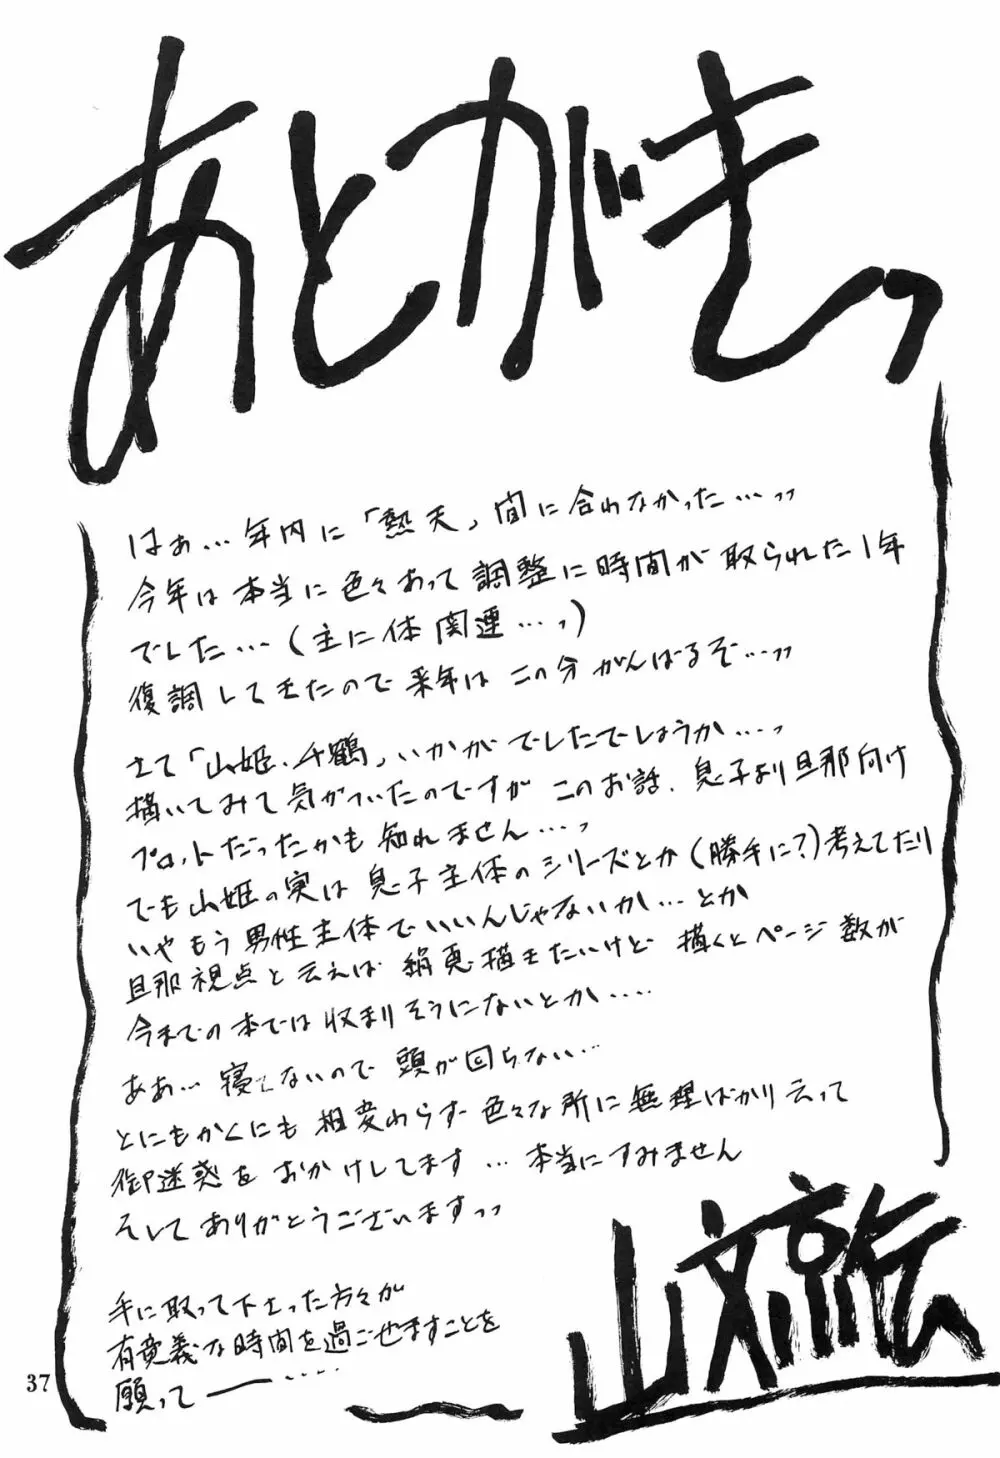 あとがきっ
はぁ…年内に「熱天」間に合わなかった…ッッ
今年は本当に色々あって調整に時間が取られた1年
でした…(主に体関連…ッ)
復調してきたので来年はこの分がんばるぞ…ッッ
さて「山姫・千鶴」いかがでしたでしょうか…ッ
描いてみて気がついたのですがこのお話、息子より旦那向け
プロットだったかも知れません…ッ
でも山姫の実は息子主体のシリーズとか(勝手に?)考えてたり
いやもう男性主体でいいんじゃないか…とか
旦那視点と云えば絹恵描きたいけど描くとページ数が
今までの本では収まりそうにないとか….
ああ…寝てないので頭が回らない…
とにもかくにも相変わらず色々な所に無理ばかり云って
御迷惑をおかけしてます…本当にすみません
そしてありがとうございますッッ
手に取って下さった方々が
有意義な時間を過ごせますことを
願って―….
山文京伝
37